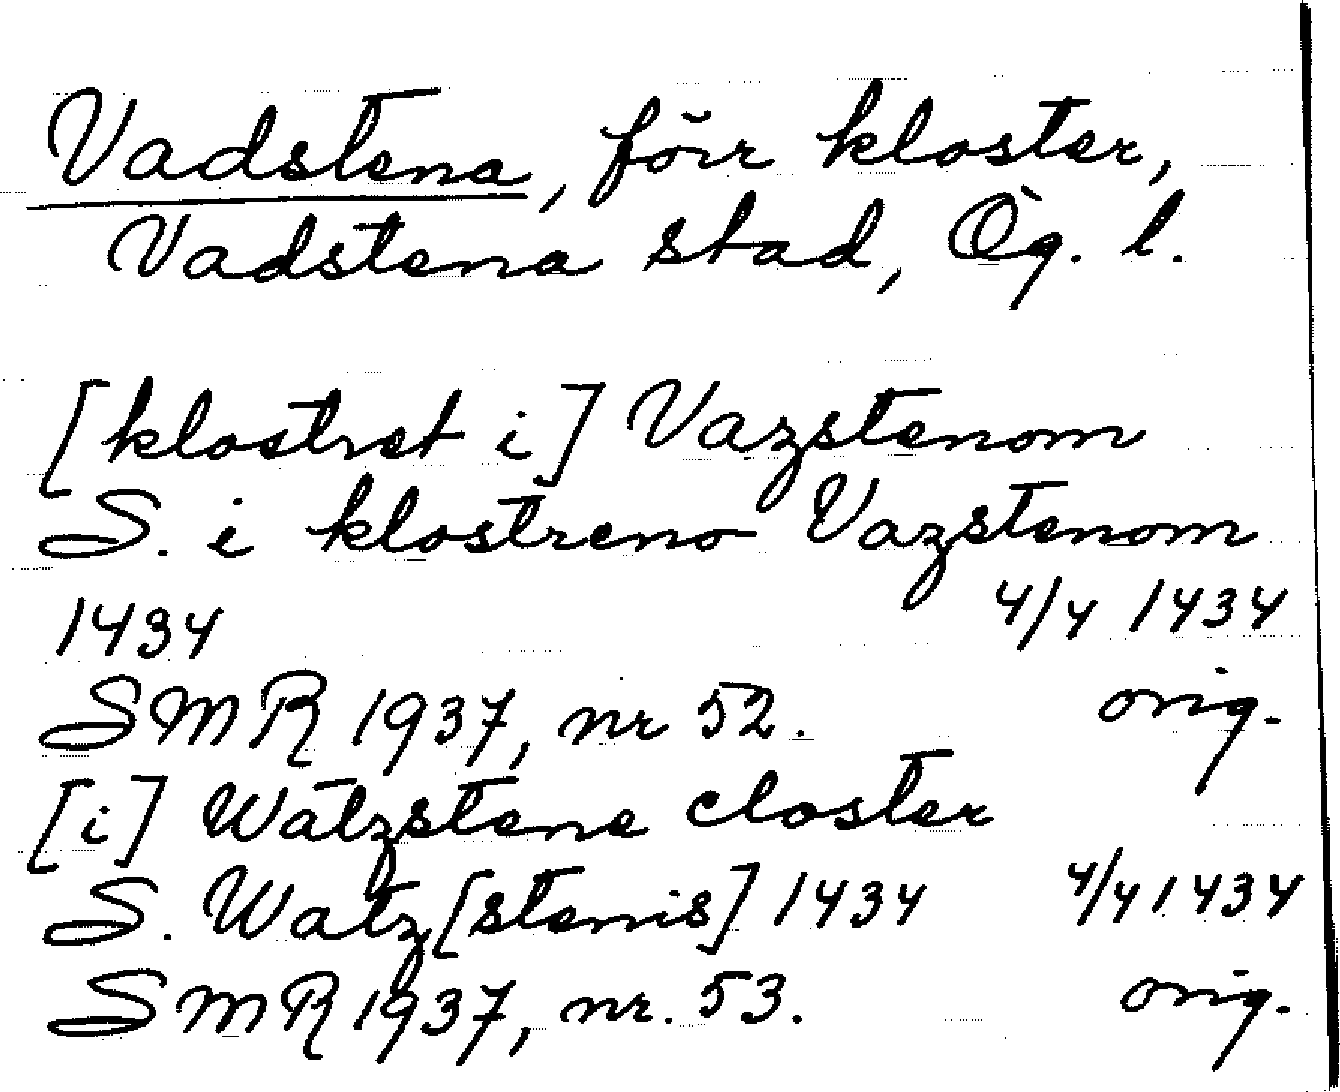 Vadstena, förr kloster,
Vadstena stad, Ög. l.
[klostret i] Vazstenom
S. i klostreno Vazstenom
1434 4/4 1434
SMR 1937, nr 52. orig.
[i] Watzstene closter
S. Watz[stenis] 1434 4/4 1434
SMR 1937, nr. 53. orig.